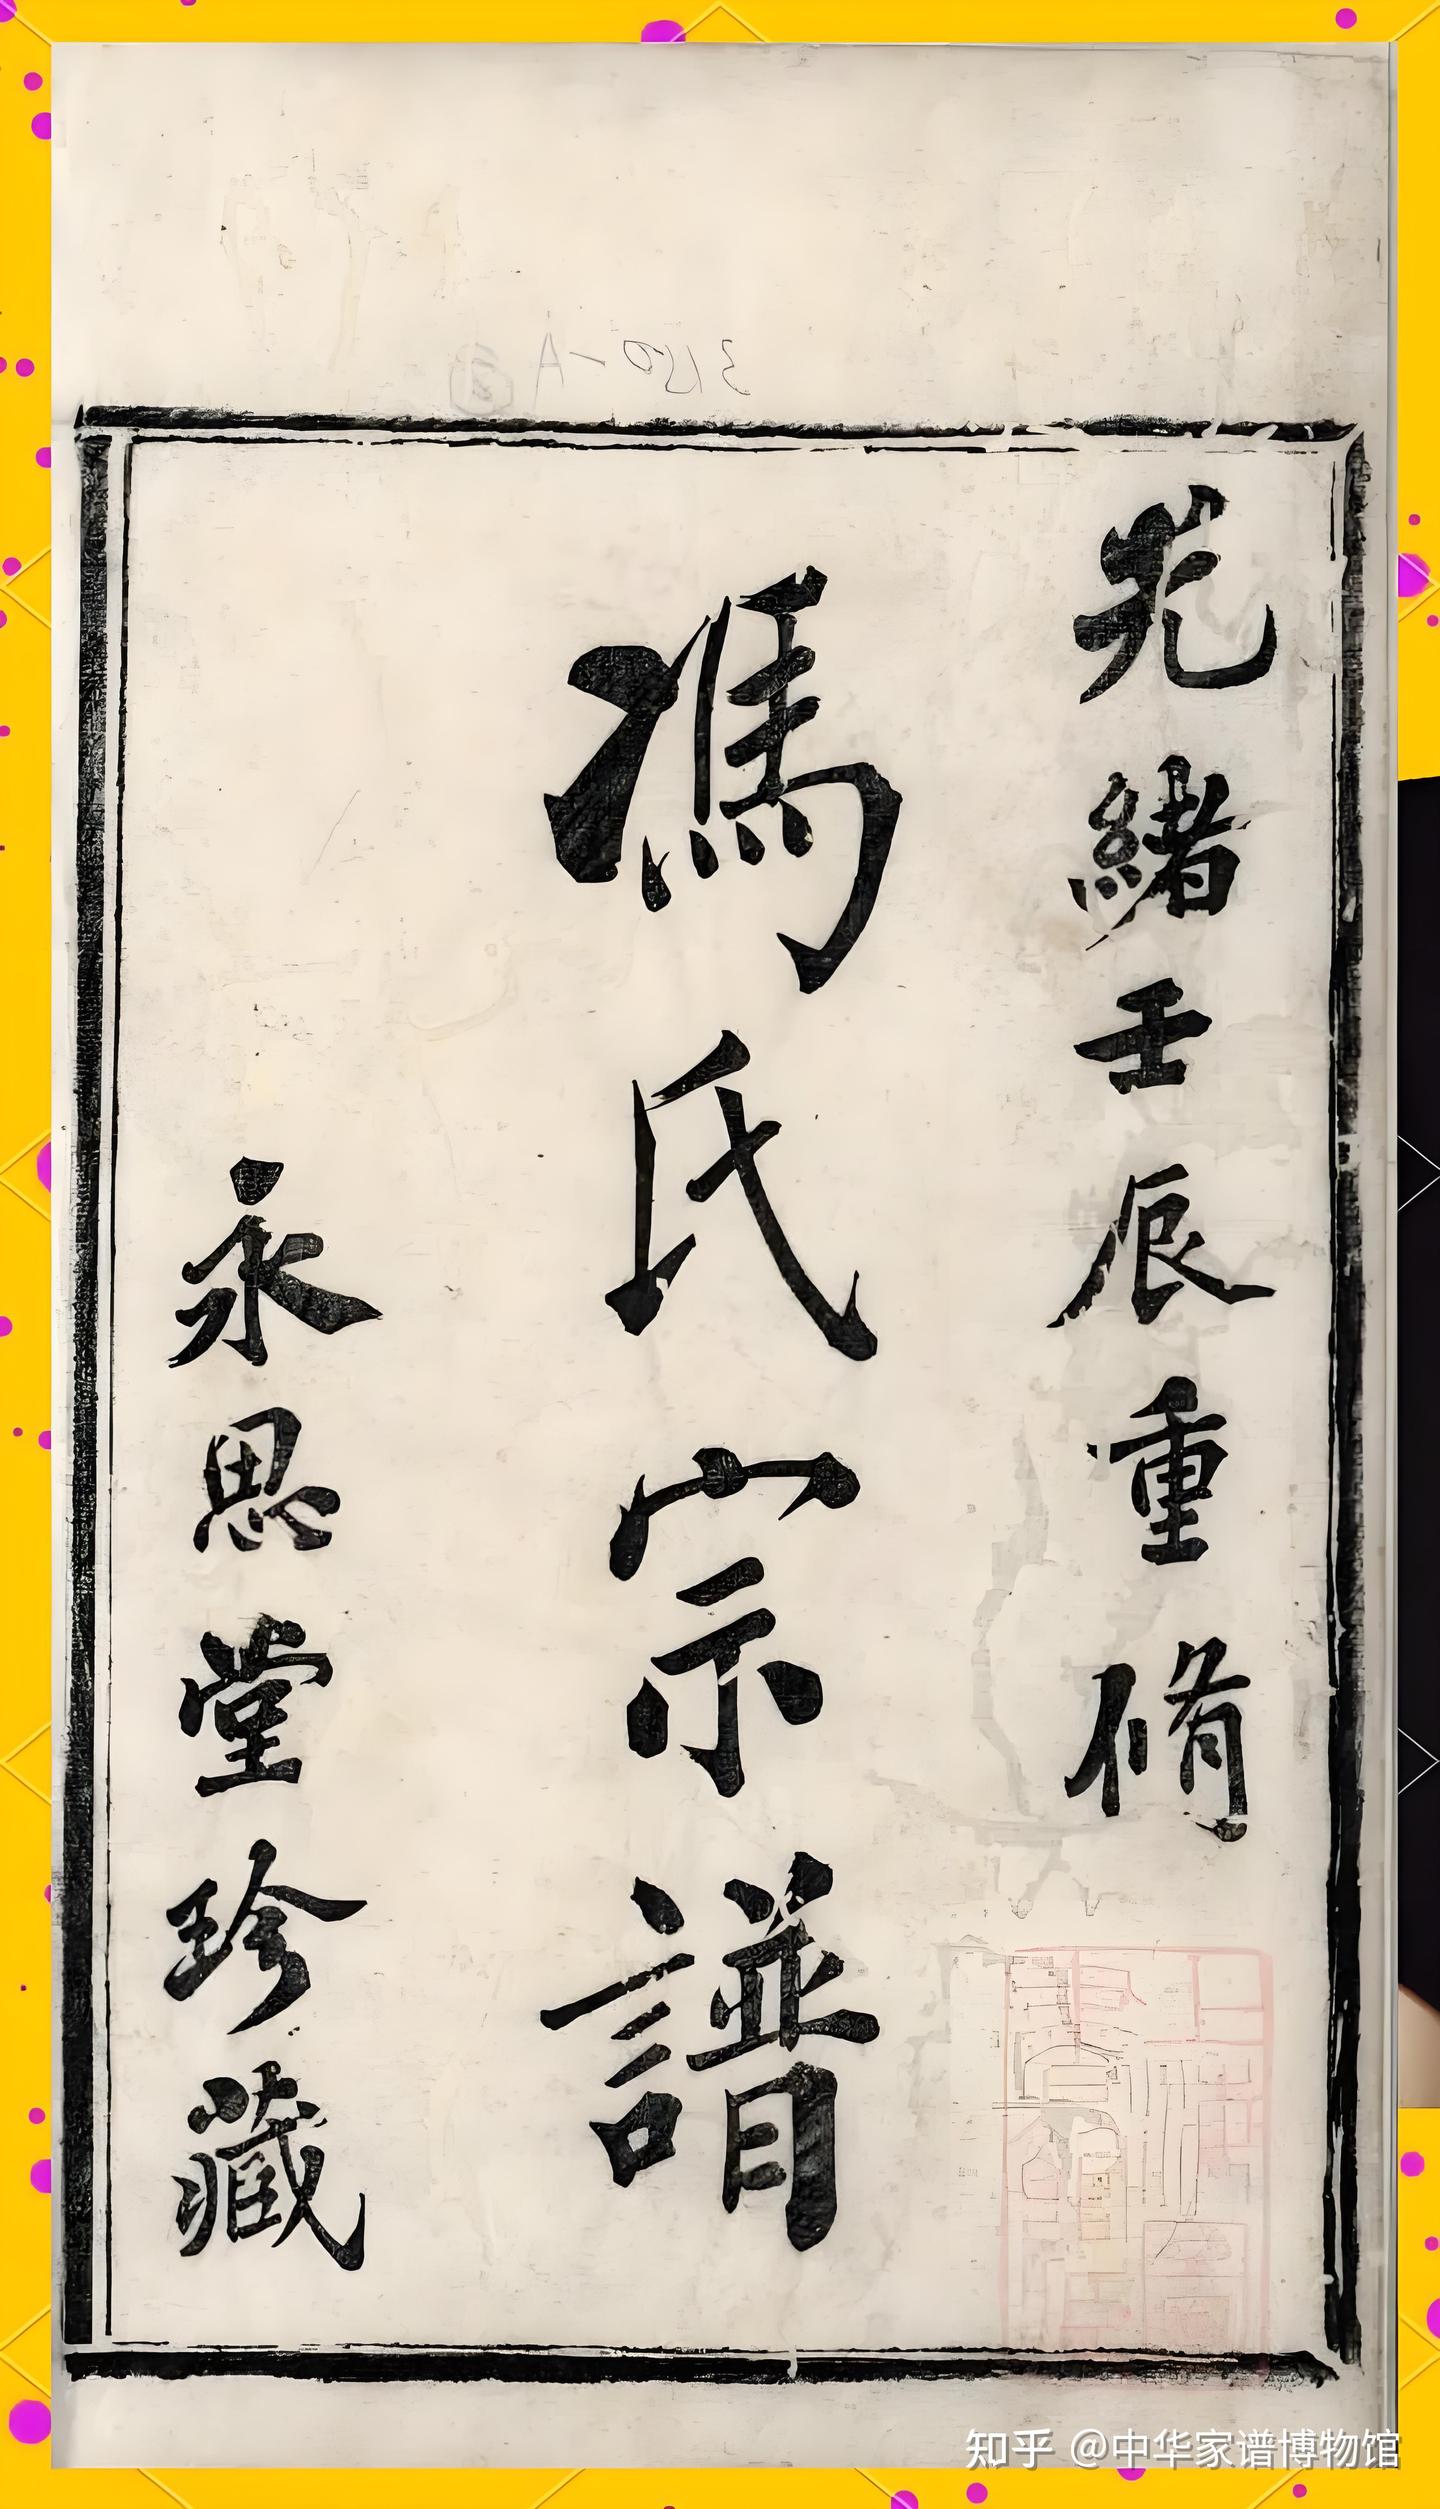 光緒壬辰重脩
馮氏宗譜
永思堂珍藏
知乎 @中华家谱博物馆